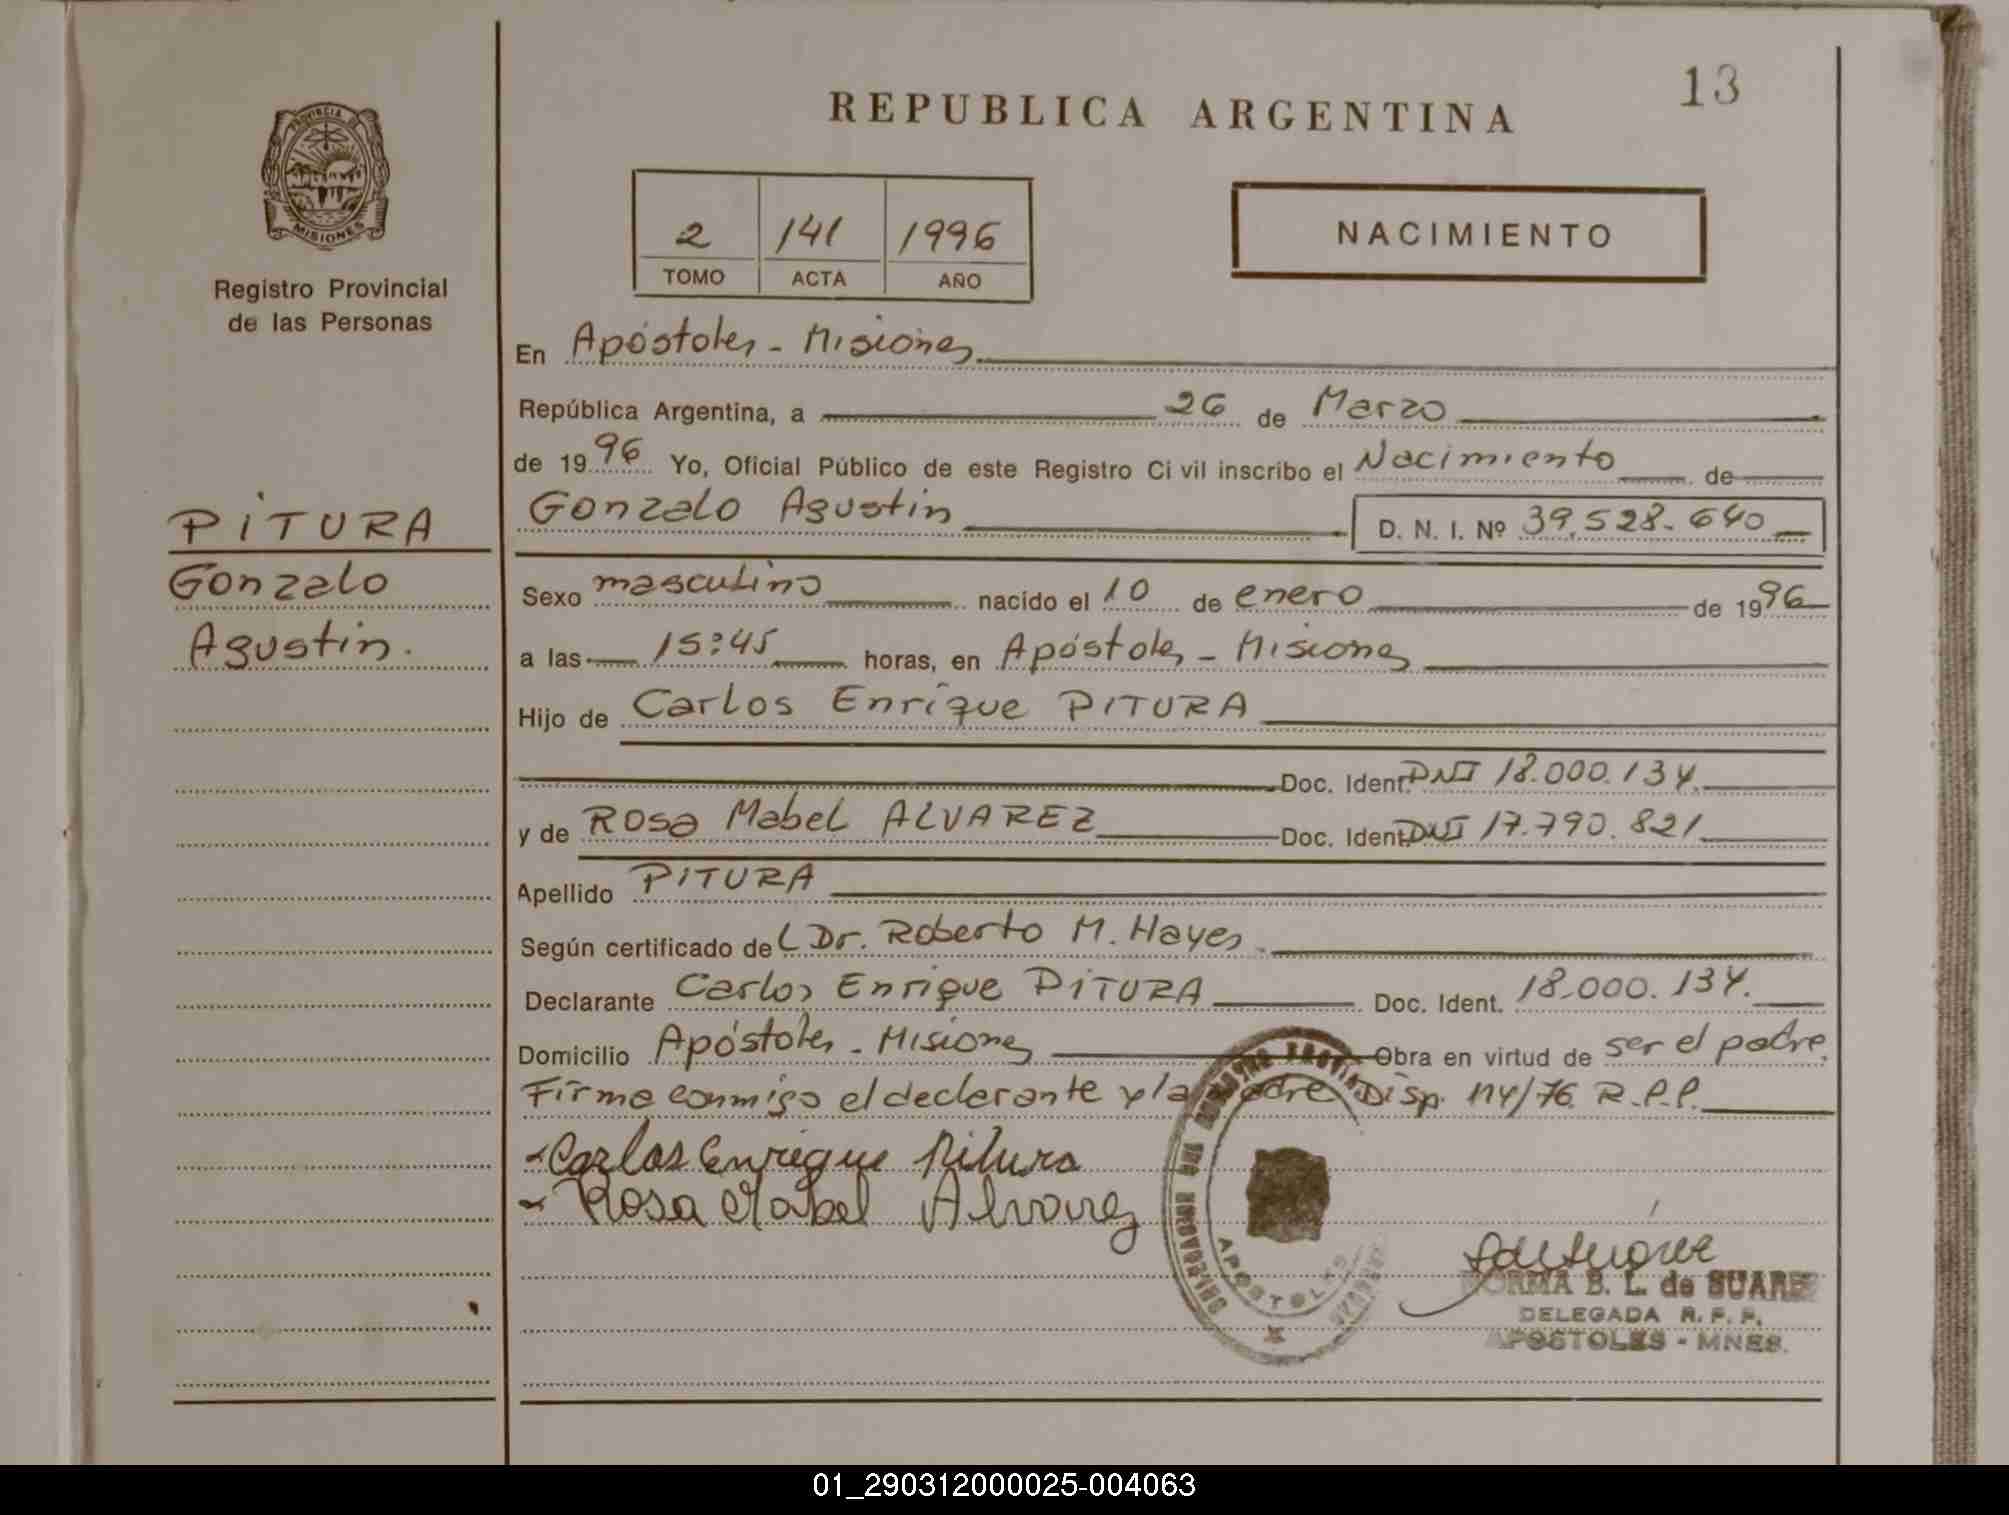 13
REPUBLICA ARGENTINA
PROVINCIA DE
MISIONES
Registro Provincial
de las Personas
2 141 1996
TOMO ACTA AÑO
NACIMIENTO
En Apóstoles - Misiones
República Argentina, a 26 de Marzo
de 1996 Yo, Oficial Público de este Registro Civil inscribo el Nacimiento de
Gonzalo Agustin D. N. I. Nº 39.528.640
PITURA
Gonzalo
Agustin.
Sexo masculino nacido el 10 de enero de 1996
a las 15:45 horas, en Apóstoles - Misiones
Hijo de Carlos Enrique PITURA
Doc. Ident. DNI 18.000.134.
y de Rosa Mabel ALVAREZ Doc. Ident. DNI 17.790.821
Apellido PITURA
Según certificado del Dr. Roberto M. Hayes.
Declarante Carlos Enrique PITURA Doc. Ident. 18.000.134.
Domicilio Apóstoles - Misiones Obra en virtud de ser el padre.
Firma conmigo el declarante y la madre Disp. 114/76 R.P.P.
Carlos Enrique Pitura
Rosa Mabel Alvarez
APOSTOLES
NORMA B. L. de SUAREZ
DELEGADA R. P. P.
APOSTOLES - MNES.
01_290312000025-004063